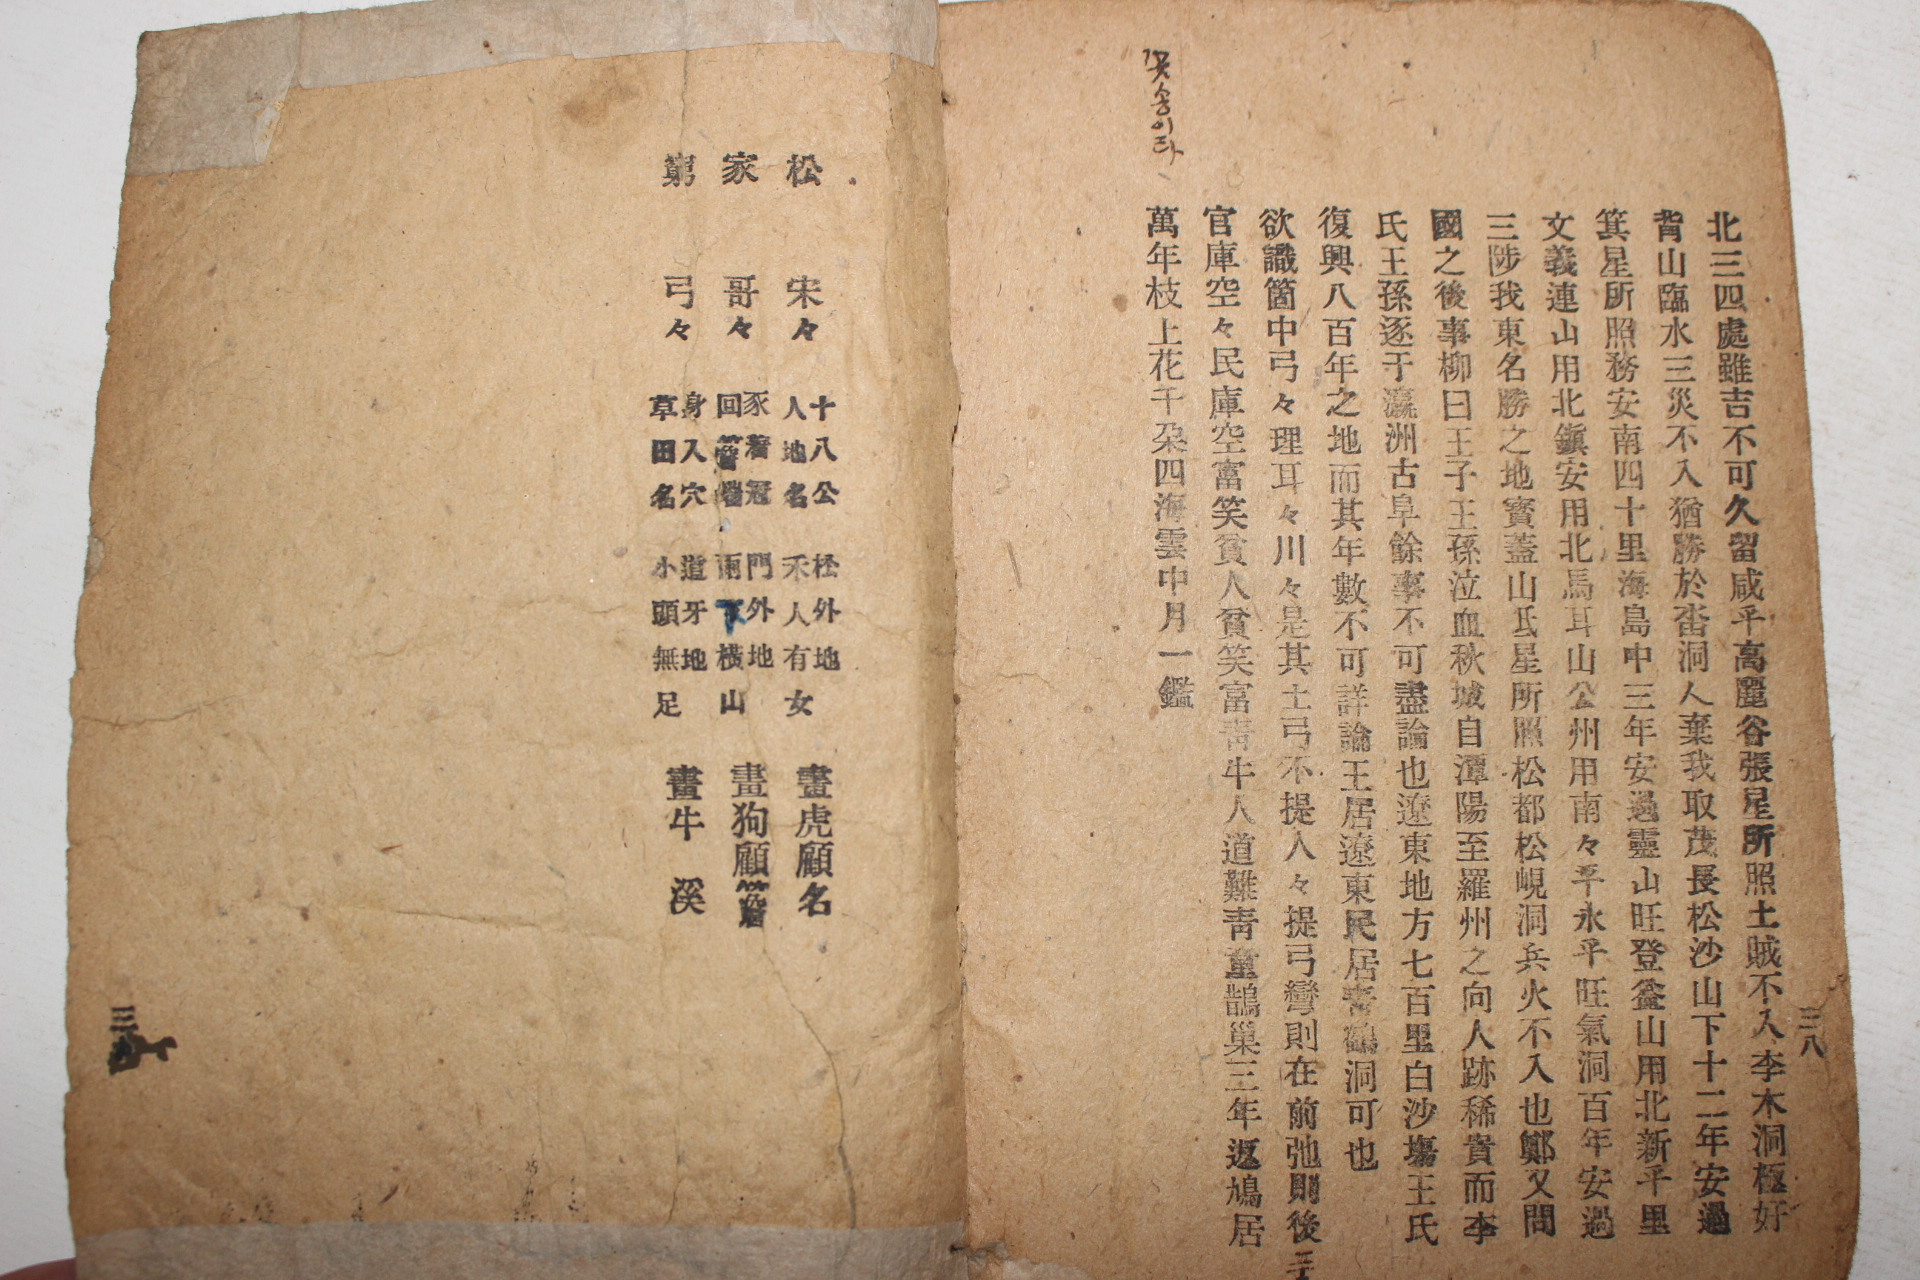 꽃송이라
三八
北三四處雖吉不可久留咸平高麗谷張星所照土賊不入李木洞極好
背山臨水三災不入猶勝於畓洞人棄我取茂長松沙山下十二年安過
箕星所照務安南四十里海島中三年安過靈山旺登益山用北新平里
文義連山用北鎭安用北馬耳山公州用南々平永平旺氣洞百年安過
三陟我東名勝之地寶蓋山氐星所照松都松峴洞兵火不入也鄭又問
國之後事柳曰王子王孫泣血秋城自潭陽至羅州之向人跡稀貴而李
氏王孫逐于瀛洲古阜餘事不可盡論也遼東地方七百里白沙塲王氏
復興八百年之地而其年數不可詳論王居遼東民居靑鶴洞可也
欲識箇中弓々理耳々川々是其土弓不提人々提弓彎則在前弛則後
官庫空々民庫空富笑貧人貧笑富靑牛人道難靑童鵲巢三年返鳩居
萬年枝上花千朶四海雲中月一鑑
松 宋々 十八公 人地名 松外地 禾人有女 畫虎顧名
家 哥々 豕着冠 回簷墻 門外地 雨下橫山 畫狗顧簷
窮 弓々 身入穴 草田名 道牙地 小頭無足 畫牛 溪
三